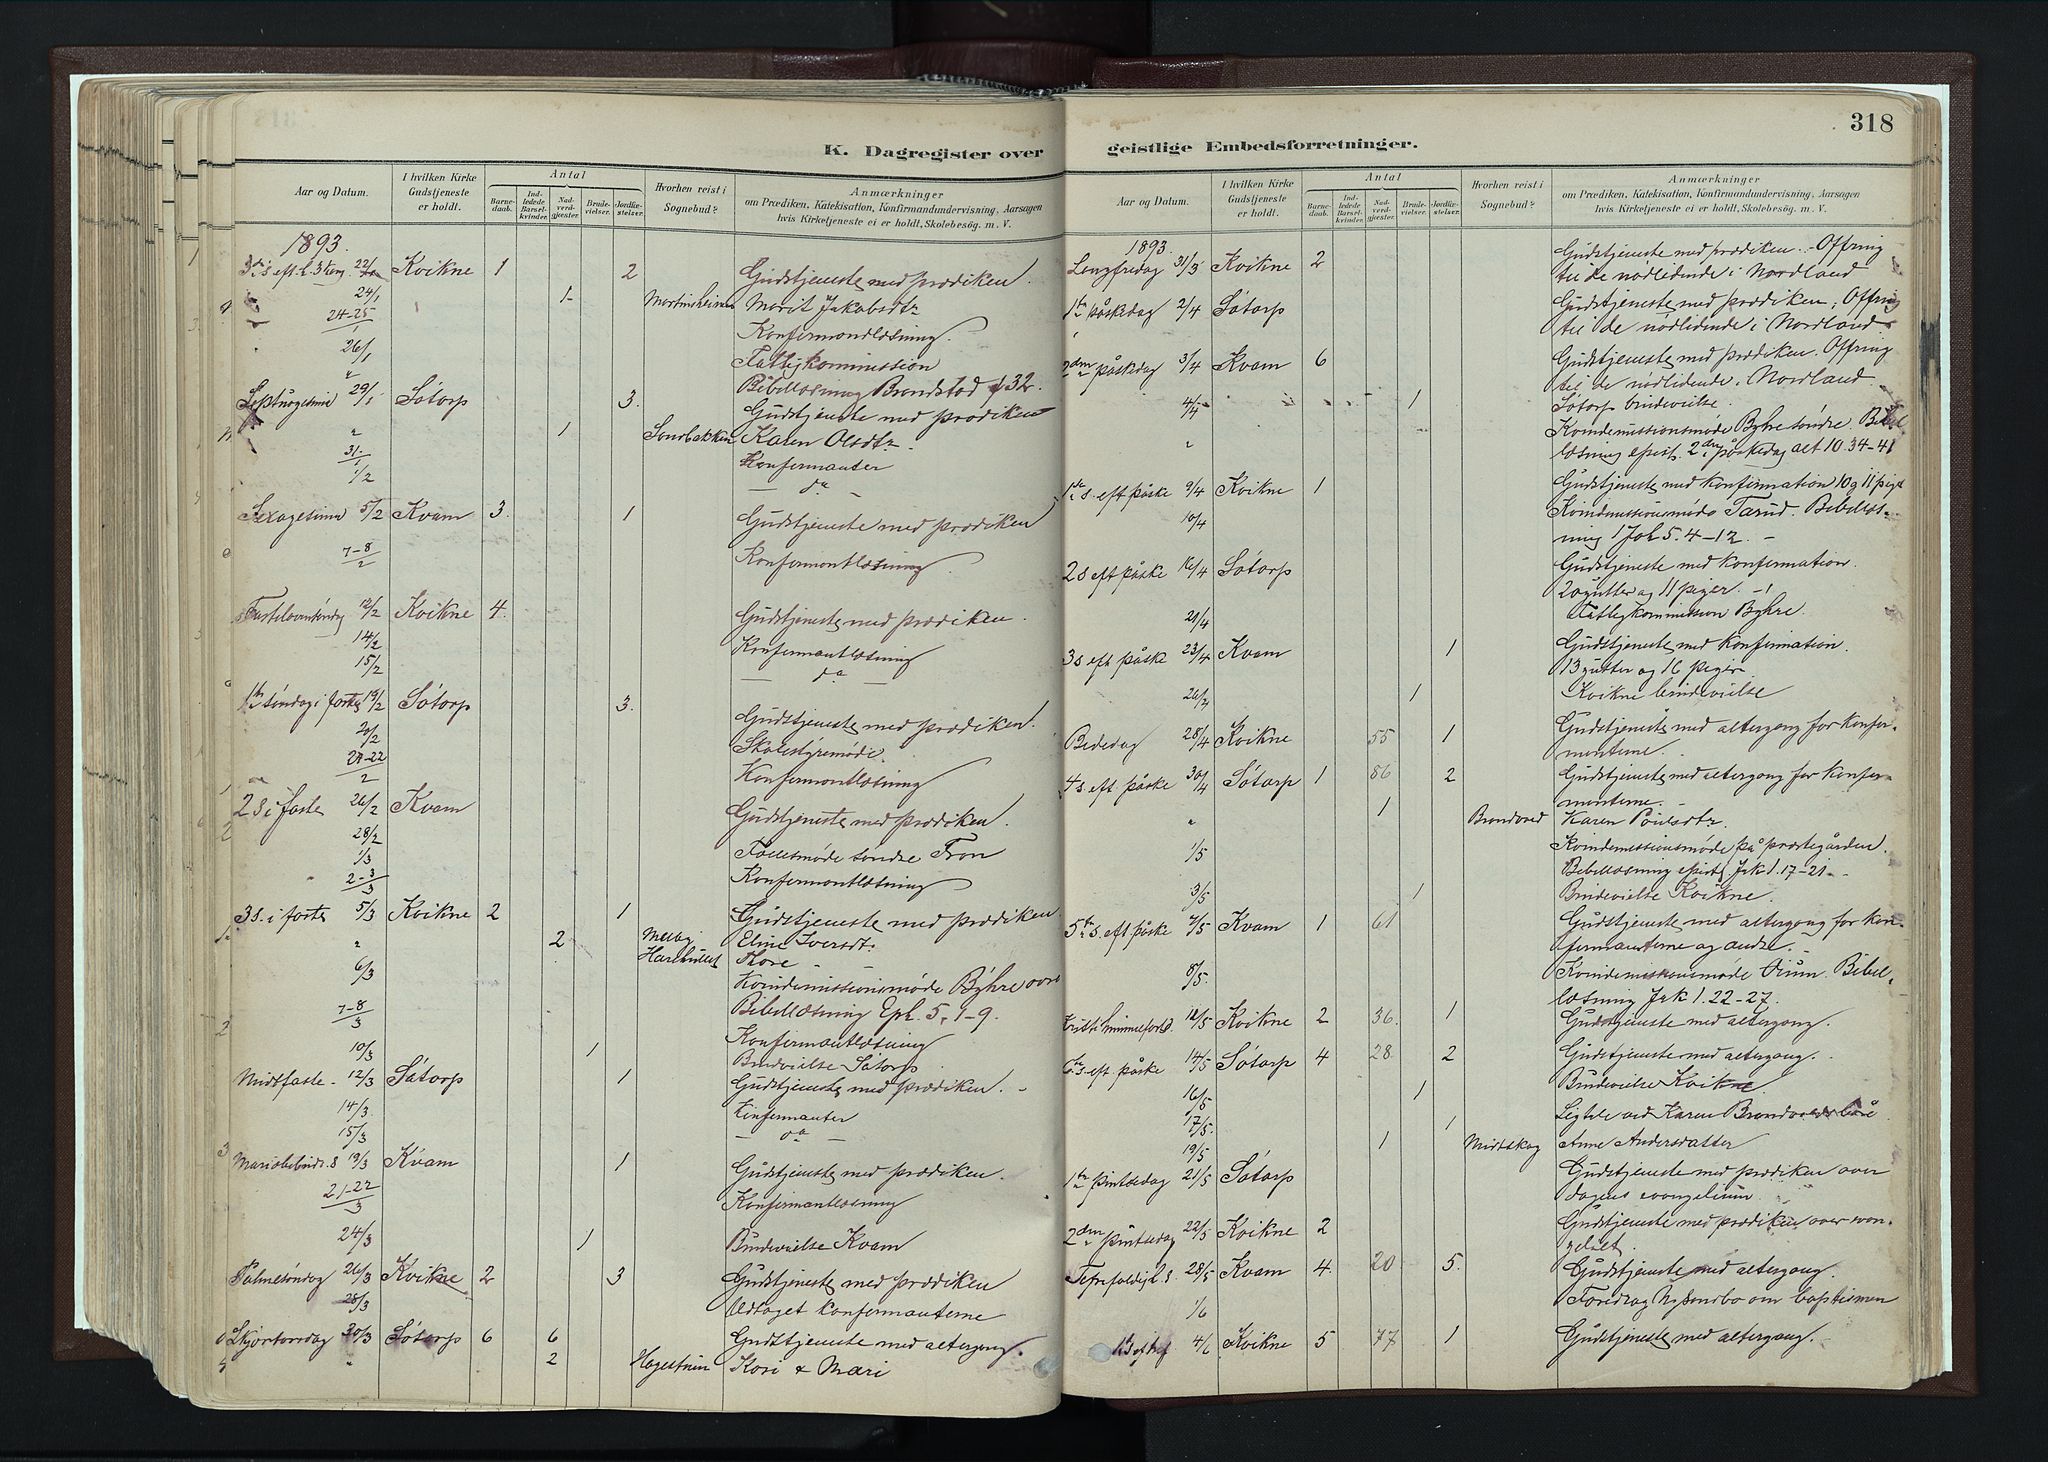 318
K. Dagregister over geistlige Embedsforretninger.
Aar og Datum.
I hvilken Kirke Gudstjeneste er holdt.
Antal
Barnedaab.
Indledede Barselkvinder.
Nadverdgjester.
Brudevielser.
Jordfæstelser.
Hvorhen reist i Sognebud?
Anmærkninger
om Prædiken, Katekisation, Konfirmandundervisning, Aarsagen
hvis Kirketjeneste ei er holdt, Skolebesøg. m. V.
1893.
3die s eft. h. 3 kong. 22/1 Kvikne 1 2 Gudstjeneste med prædiken.
24/1 1 Marit Jakobsdtr
24-25/1 Konfirmantlæsning.
26/1 Fattigkommission
Bibellæsning Brandstad
Septuagesima 29/1 Sótorp 3. Gudstjeneste med prædiken
" 1 Karen Olsdtr
31/1 Konfirmanter
1/2 — do —
Sexagesima 5/2 Kvam 3. 1 Gudstjeneste med prædiken
7-8/2 Konfirmantlæsning
Fastelavnsöndag 12/2 Kvikne 4. Gudstjeneste med prædiken.
14/2 Konfirmantlæsning
15/2 — do —
1ste söndag i faste 19/2 Sótorp 3. Gudstjeneste med prædiken.
20/2 Skolestyremöde.
21-22/2 Konfirmantlæsning
2 s i faste 26/2 Kvam Gudstjeneste med prædiken.
28/2
1/3 Fællesmöde söndre Fron
2-3/3 Konfirmantlæsning
3 s. i faste 5/3 Kvikne 2 1 Gudstjeneste med prædiken
" 2 Melby Eline Iversdt.
Thore
6/3 Kvindemissionsmöde Byhre
Bibellæsning Eph. 5, 1-9.
7-8/3 Konfirmantlæsning
10/3 1 Brudevielse Sótorp
Midtfaste 12/3 Sótorp 1 Gudstjeneste med prædiken.
14/3 Konfirmanter
15/3 — do —
Mariæbebud. s 19/3 Kvam 1 Gudstjeneste med prædiken.
21-22/3 Konfirmantlæsning
24/3 1 Brudevielse Kvam
Palmesöndag 26/3 Kvikne 2 3 Gudstjeneste med prædiken
28/3 Udtaget konfirmanterne
Skjærtorsdag 30/3 Sótorp 6 6 Gudstjeneste med altergang.
" 2 Kari & Mari
Aar og Datum.
I hvilken Kirke Gudstjeneste er holdt.
Antal
Barnedaab.
Indledede Barselkvinder.
Nadverdgjester.
Brudevielser.
Jordfæstelser.
Hvorhen reist i Sognebud?
Anmærkninger
om Prædiken, Katekisation, Konfirmandundervisning, Aarsagen
hvis Kirketjeneste ei er holdt, Skolebesøg. m. V.
1893.
Langfredag 31/3 Kvikne 2 Gudstjeneste med prædiken. Offring
til de nödlidende i Nordland
1ste påskedag 2/4 Sótorp Gudstjeneste med prædiken, Offring
til de nödlidende i Nordland.
2den påskdag 3/4 Kvam 6 Gudstjeneste med prædiken. Offring
til de nödlidende i Nordland.
4/4 1 Sótorp brudevielse.
" Kvindemissionsmöde Byhre söndre. Bibel
læsning epist. 2den påskedag act 10.34-41
1ste s. eft påske 9/4 Kvikne 1 Gudstjeneste med konfirmation 10 g 11 piger
10/4 Kvindemissionsmöde Tarud. Bibellæs-
ning 1 Joh 5. 4-12.
2 s eft påske 16/4 Sótorp Gudstjeneste med konfirmation.
20 gutter og 11 piger.
21/4 Fattigkommission Byhre.
3 s eft påske 23/4 Kvam 1 Gudstjeneste med konfirmation.
13 gutter og 16 piger.
26/4 1 Kvikne brudevielse
Bededag 28/4 Kvikne 55 1 Gudstjeneste med altergang for konfir-
manterne.
4 s. eft påske 30/4 Sótorp 1 86 2 Gudstjeneste med altergang for konfir-
manterne.
" 1 Karen Poulsdtr.
1/5 Kvindemissionsmöde på præstegården.
Bibellæsning epist Jak 1. 17-21
3/5 1 Brudevielse Kvikne.
5te s. eft påske 7/5 Kvam 1 61 Gudstjeneste med altergang for kon-
firmanterne og andre.
8/5. Kvindemissionsmöde Bibel-
læsning Jak 1. 22-27.
Kristi himmelfartsd. 12/5 Kvikne 2 36. 1 Gudstjeneste med altergang.
6te s. eft påske 14/5 Sótorp 4 28. 2 Gudstjeneste med altergang.
16/5 1 Brudevielse Kvikne
17/5. 1 Ligtale ved Karen
19/5 1 Midtskog Anne Andersdatter
1ste pintsedag 21/5 Sótorp Gudstjeneste med prædiken over
dagens evangelium
2den pintsedag 22/5 Kvikne 2 Gudstjeneste med prædiken over evan-
geliet.
Trefoldigh. s. 28/5 Kvam 4. 20 5. Gudstjeneste med altergang.
1/6 Foredrag om baptismen
4/6 Kvikne 5 77 1 Gudstjeneste med altergang.